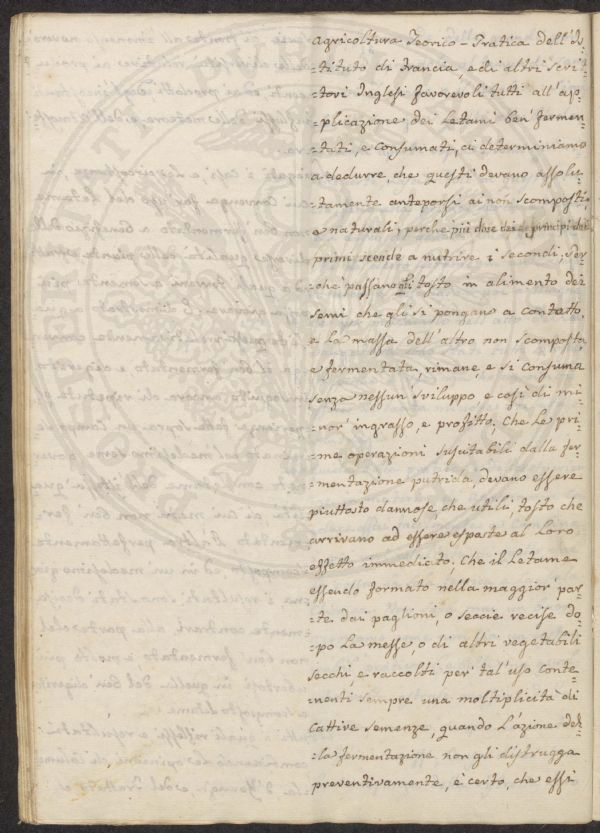 Agricoltura Teorico-Pratica dell'Is-
-tituto di Francia, e di altri Scrit-
-tori Inglesi favorevoli tutti all'ap-
-plicazione dei Letami ben fermen-
-tati, e consumati, ci determiniamo
a dedurre, che questi devano assolu-
-tamente anteporsi ai non scomposti,
e naturali; perchè più dose dei principi dei
primi scende a nutrire i secondi; per-
-chè passano tosto in alimento dei
semi che gli si pongano a contatto,
e la massa dell'altro non scomposta,
e fermentata, rimane, e si consuma
senza nessun'sviluppo, e così di mi-
-nor'ingrasso, e profitto; Che Le pri-
-me operazioni suscitabili dalla fer-
-mentazione putrida, devano essere
piuttosto dannose che utili, tosto che
arrivano ad essere esposte al Loro
effetto immediato; Che il Letame
essendo formato nella maggior'par-
-te dai paglioni, o seccie recise do-
-po La messe, o di altri vegetabili
secchi e raccolti per tal'uso conte-
-nenti sempre una moltiplicità di
Cattive semenze, quando L'azione del-
-la fermentazione non gli distrugga
preventivamente, è certo, che essi